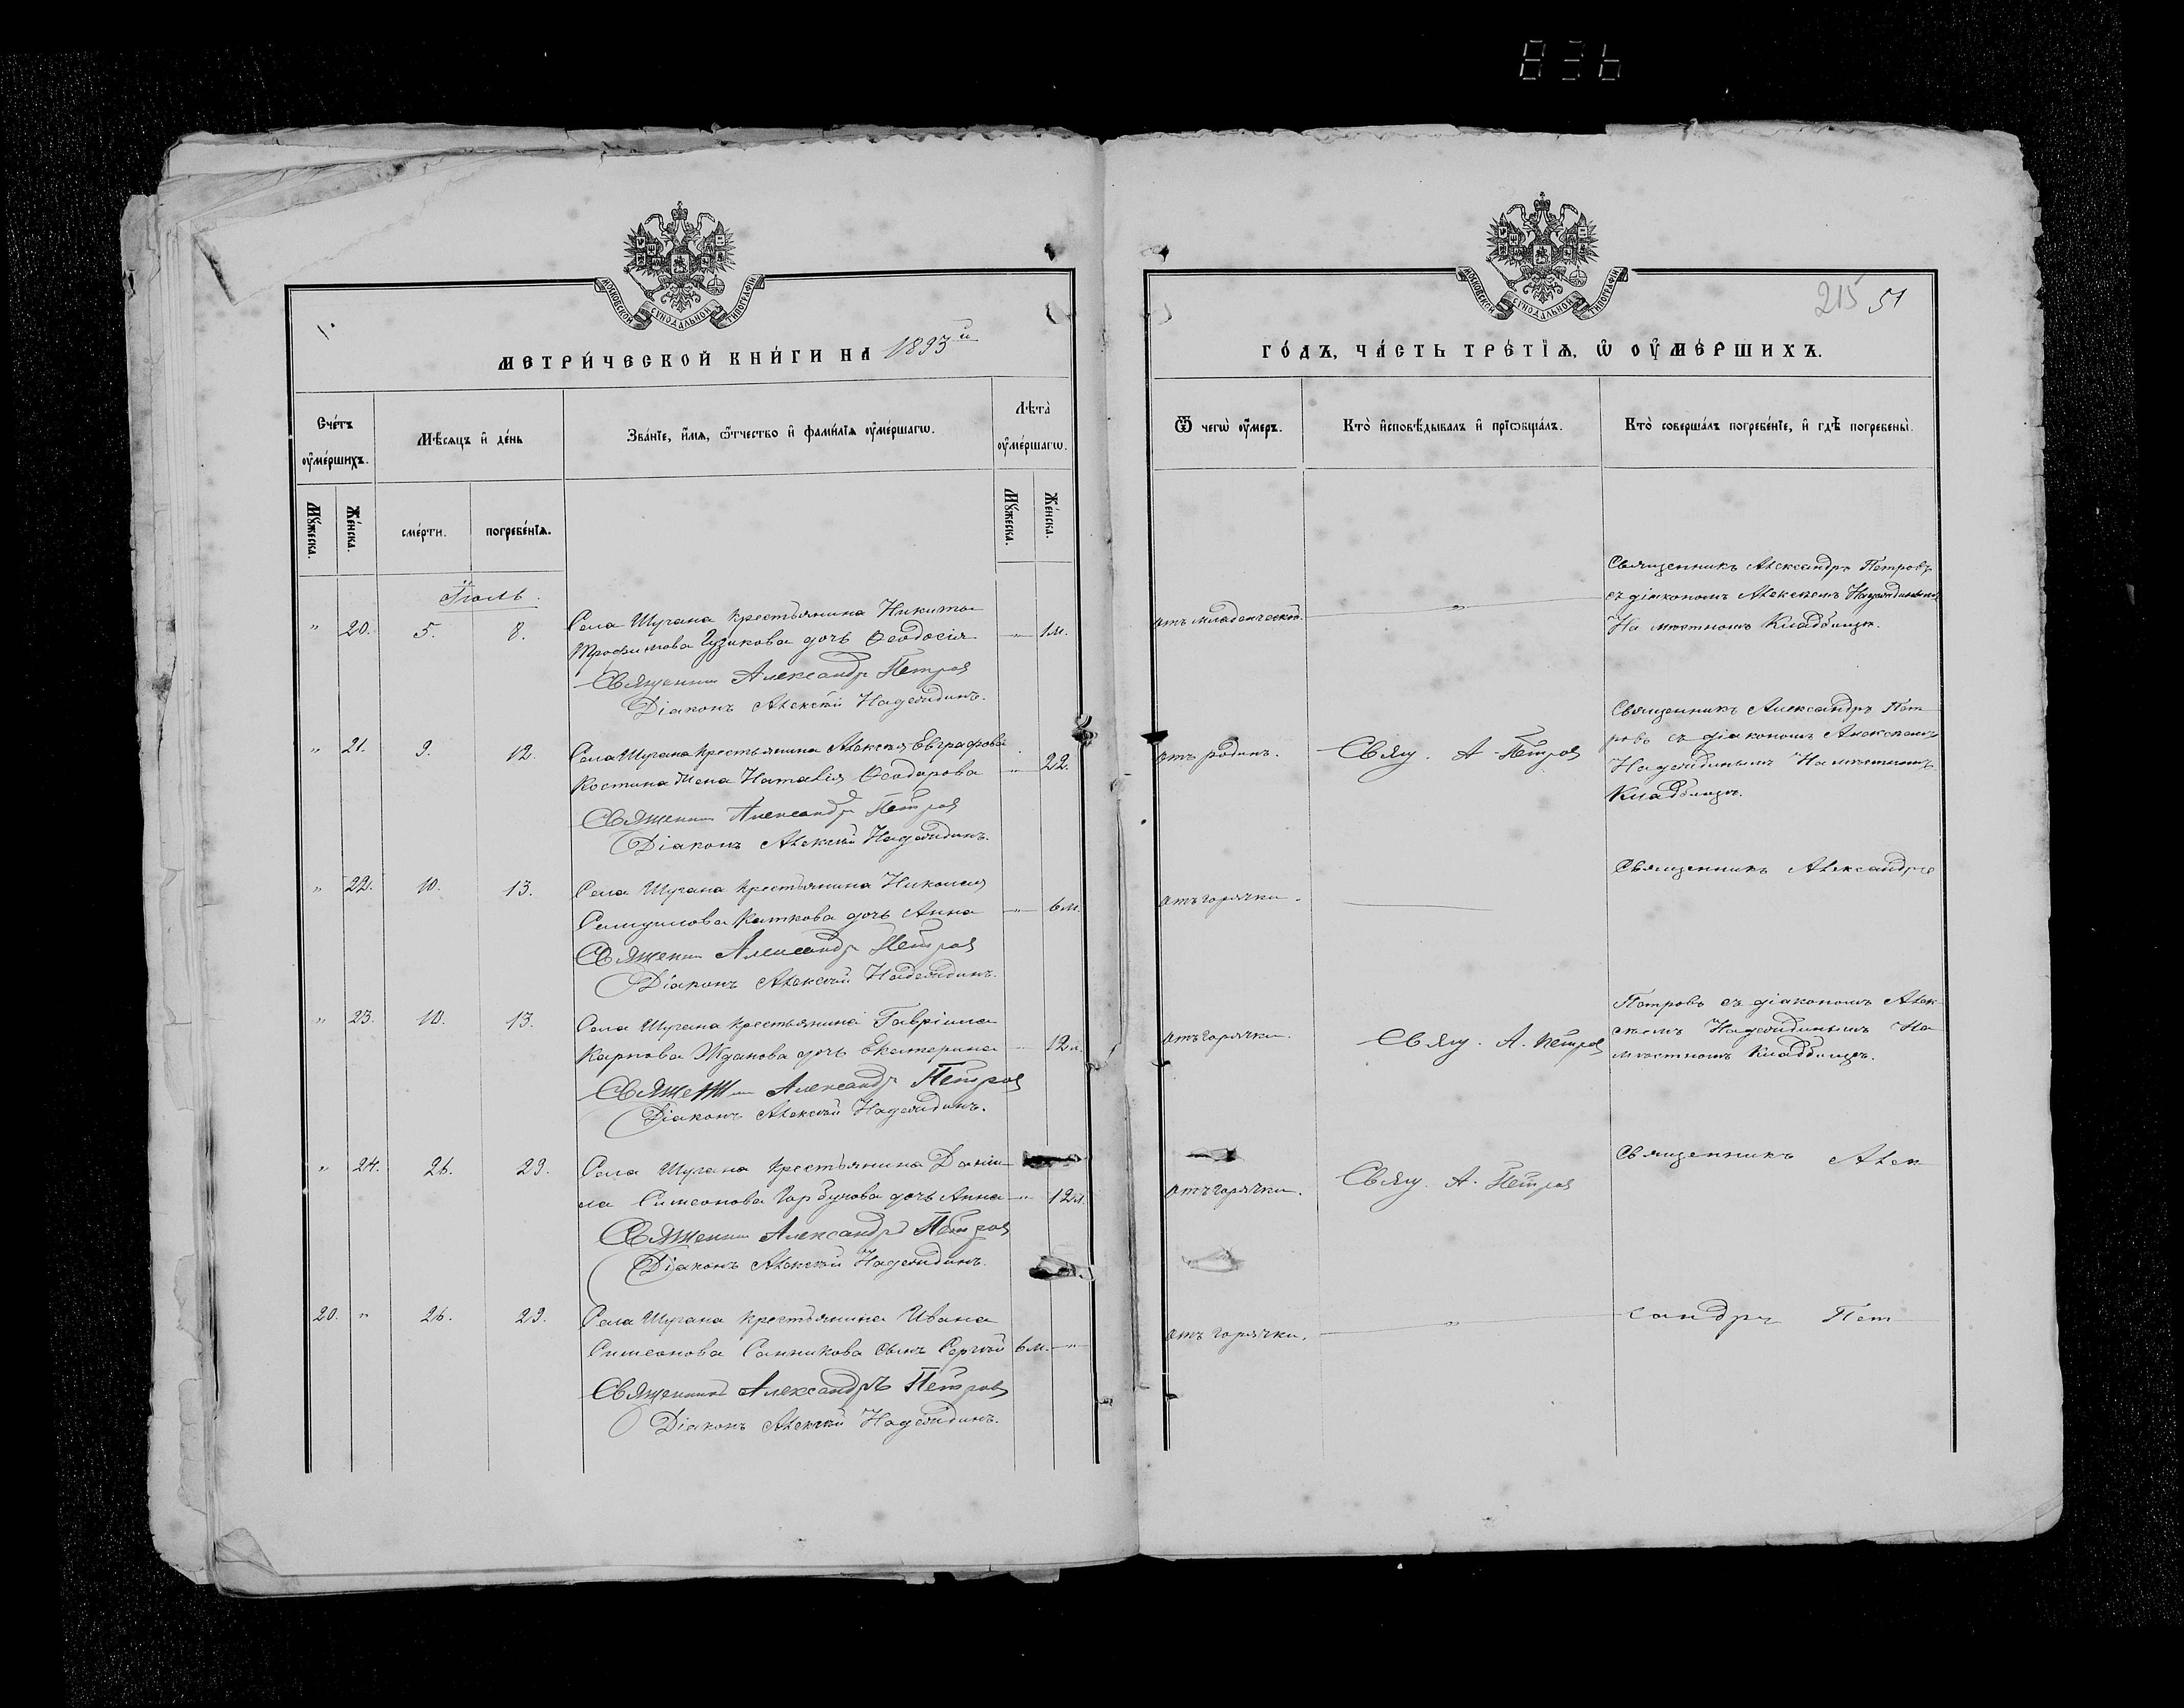 836
МОСКОВСКОЙ СѴНОДАЛЬНОЙ ТИПОГРАФІИ
МЕТРИ́ЧЕСКОЙ КНИ́ГИ НА 1893 й
Сче́тъ ᲂу҆ме́ршихъ.
Мѣ́сяцъ и҆ де́нь
Зва́нїе, и҆́мя, ѻ҆́тчество и҆ фами́лїя ᲂу҆ме́ршагѡ.
Лѣта̀ ᲂу҆ме́ршагѡ.
Мꙋ́жеска.
Же́нска.
сме́рти.
погребе́нїя.
Мꙋ́жеска.
Же́нска.
Іюль.
" 20. 5. 8. Села Шугана крестьянина Никиты
Трофимова Гузикова дочь Ѳеодосія " 1м.
Священник Александр Петров
Діаконъ Алексѣй Надеждинъ.
" 21. 9. 12. Села Шугана крестьянина Алексѣя Евграфова
Костина жена Наталія Ѳеодорова " 22.
Священник Александр Петров
Діаконъ Алексѣй Надеждинъ.
" 22. 10. 13. Села Шугана крестьянина Николая
Каткова дочь Анна " 6м.
Священник Александр Петров
Діаконъ Алексѣй Надеждинъ.
" 23. 10. 13. Села Шугана крестьянина Гавріила
Карпова Жданова дочь Екатерина " 12л.
Священник Александр Петров
Діаконъ Алексѣй Надеждинъ.
" 24. 26. 29. Села Шугана крестьянина Даніи-
ла Симеонова Горбунова дочь Анна " 12л.
Священник Александр Петров
Діаконъ Алексѣй Надеждинъ.
20. " 26. 29. Села Шугана крестьянина Ивана
Симеонова Санникова сынъ Сергѣй 6м. "
Священник Александръ Петров
Діаконъ Алексѣй Надеждинъ.
МОСКОВСКОЙ СѴНОДАЛЬНОЙ ТИПОГРАФІИ
215 51
ГО́ДЪ, ЧА́СТЬ ТРЕ́ТЇѦ, Ѡ҆ ОУ҆МЕ́РШИХЪ.
Ѿ чегѡ̀ ᲂу҆́меръ.
Кто̀ и҆сповѣ́дывалъ и҆ прїѡбща́лъ.
Кто̀ соверша́лъ погребе́нїе, и҆ гдѣ̀ погребены̀.
отъ младенческой. "
Священникъ Александръ Петровъ
съ діакономъ Алексѣемъ Надеждинымъ
На мѣстномъ Кладбищѣ.
отъ родинъ. Свящ. А. Петров
Священникъ Александръ Пет
ровъ съ діакономъ Алексѣемъ
Надеждинымъ На мѣстномъ
Кладбищѣ.
отъ горячки.
Священникъ Александръ
отъ горячки. Свящ. А. Петров
Петровъ съ діакономъ Алек
сѣемъ Надеждинымъ На
мѣстномъ Кладбищѣ.
отъ горячки. Свящ. А. Петров
Священникъ Алек
отъ горячки. "
сандръ Пет